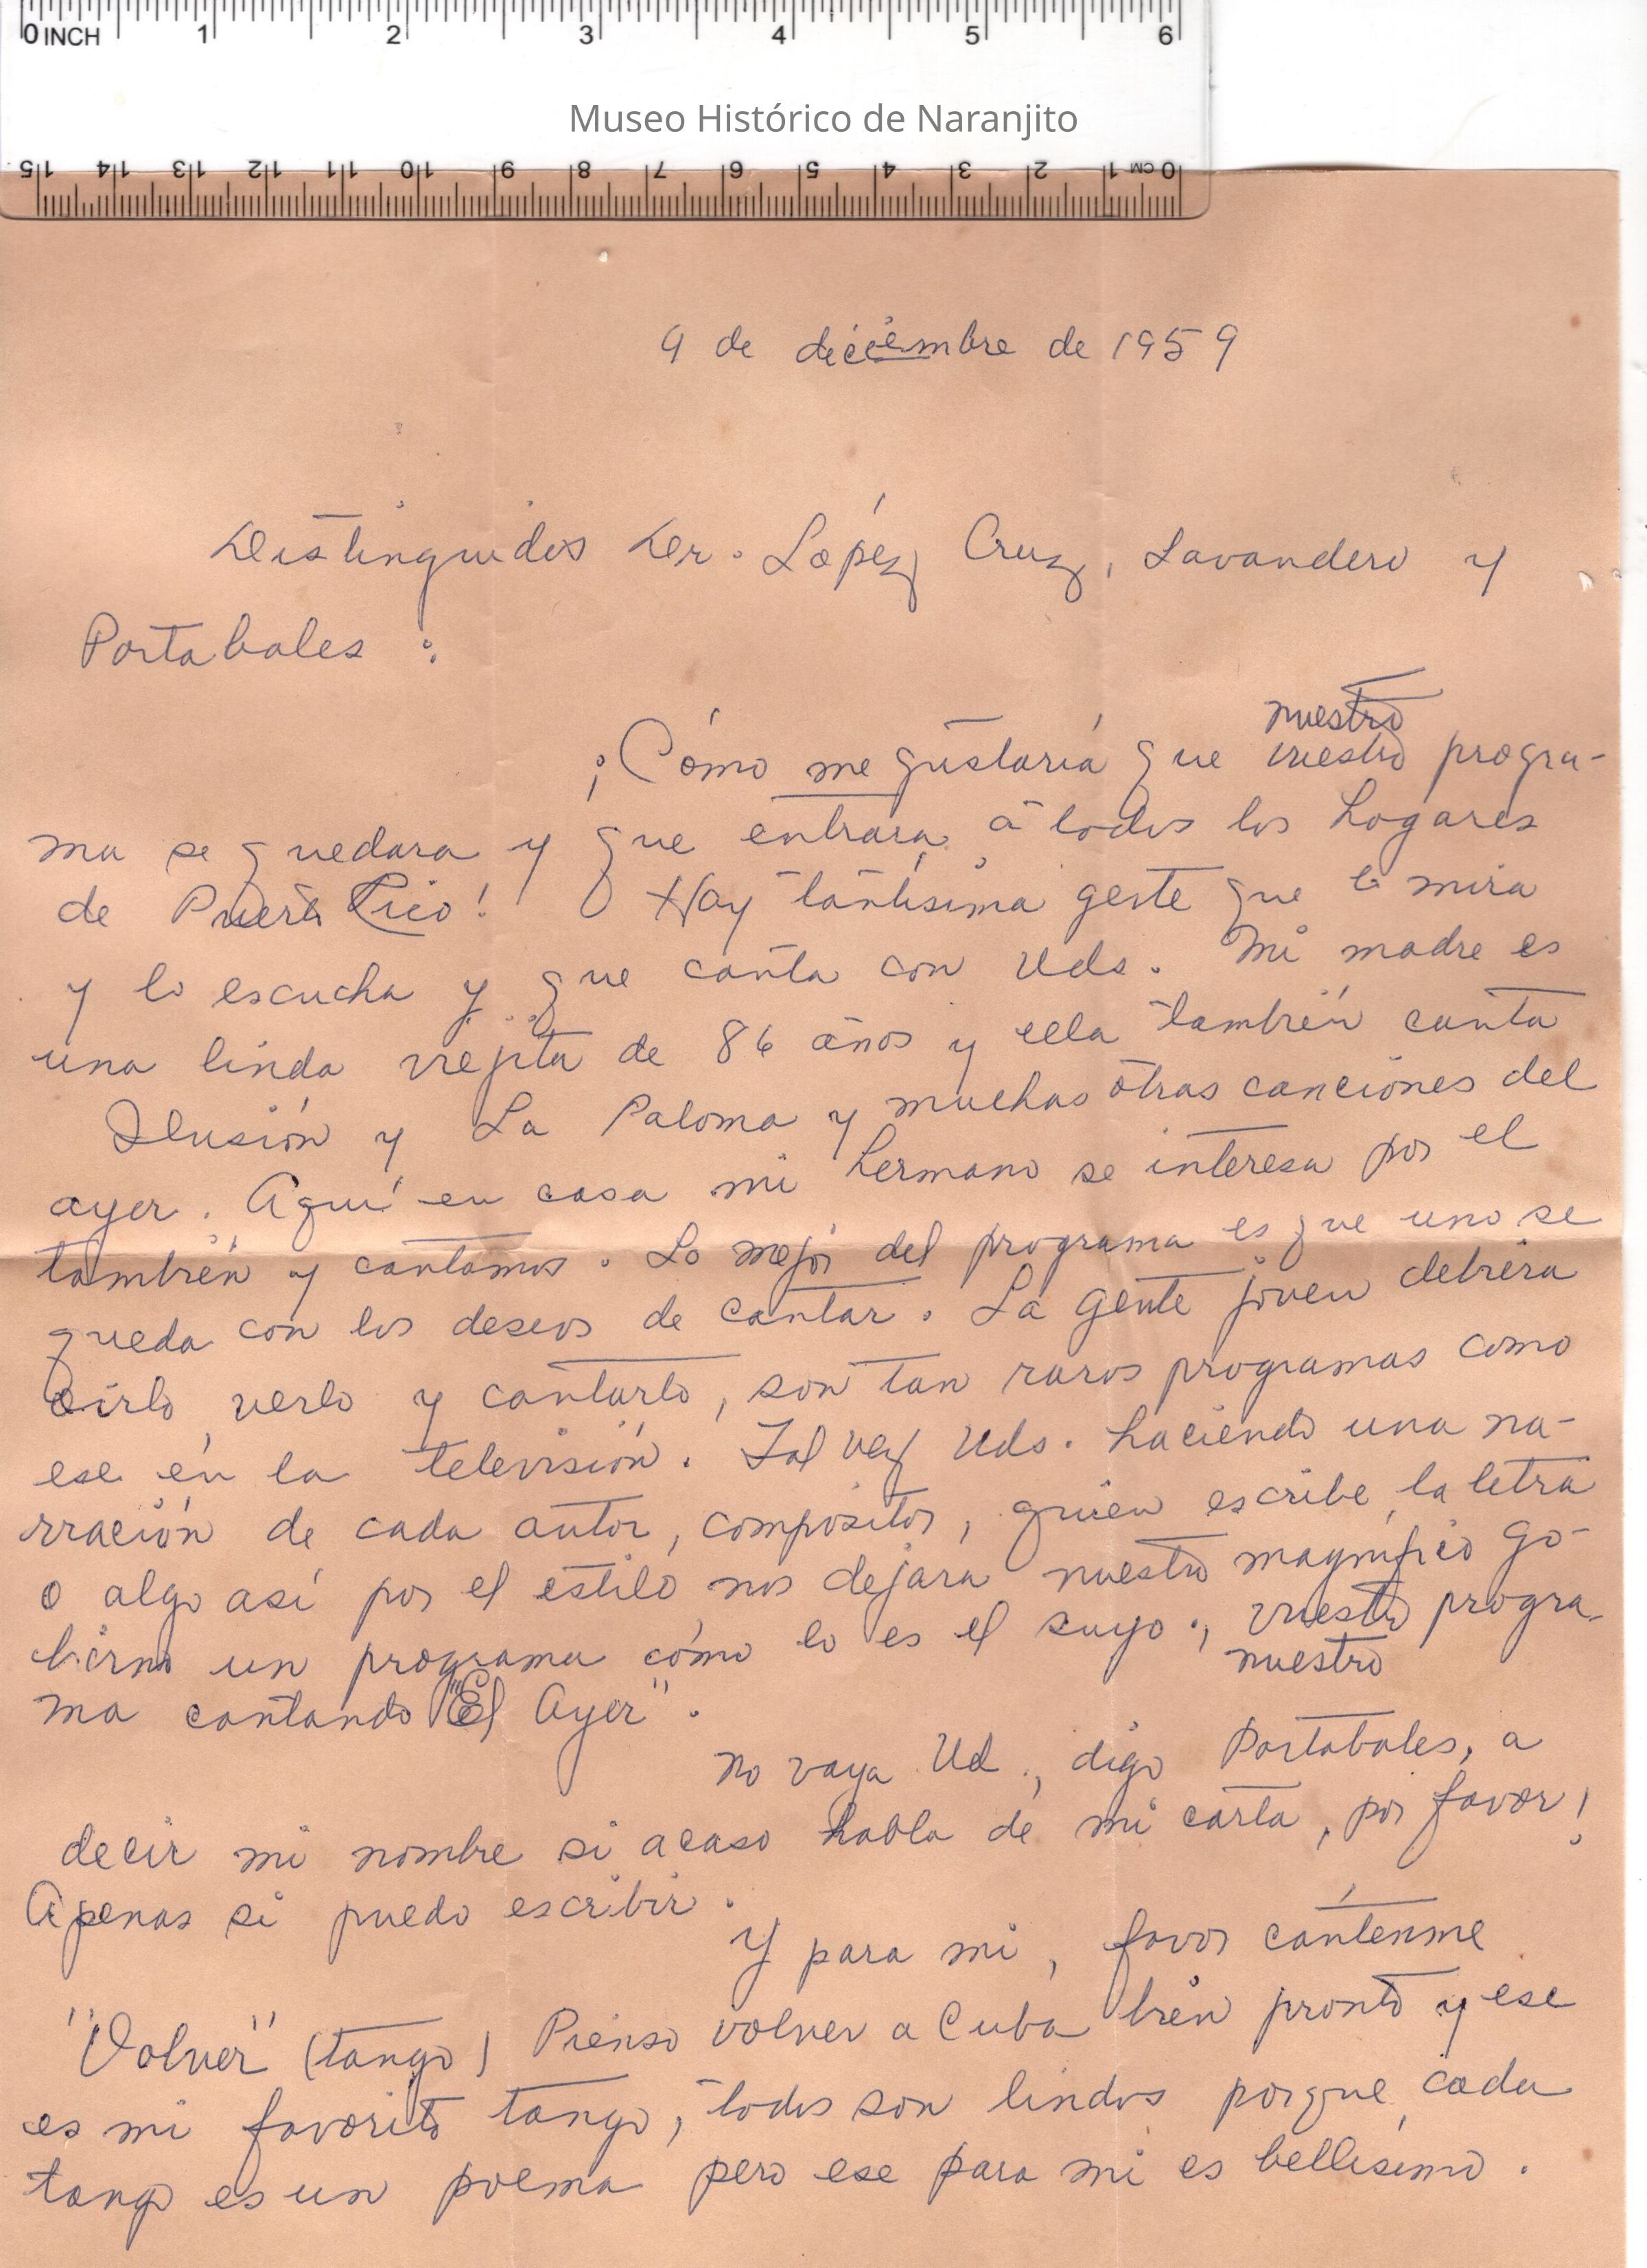 0 INCH 1 2 3 4 5 6
Museo Histórico de Naranjito
15 14 13 12 11 10 9 8 7 6 5 4 3 2 1 CM 0
9 de diciembre de 1959
Distinguidos Ser. López Cruz, Lavandero y
Portabales :
nuestro
¡Cómo me gustaría que vuestro progra-
ma se quedara y que entrara a todos los hogares
de Puerto Rico! Hay tantísima gente que lo mira
y lo escucha y que canta con Uds. Mi madre es
una linda viejita de 86 años y ella también canta
Ilusión y La Paloma y muchas otras canciones del
ayer. Aquí en casa mi hermano se interesa por el
también y cantamos. Lo mejor del programa es que uno se
queda con los deseos de cantar. La gente joven debiera
oirlo, verlo y cantarlo, son tan raros programas como
ese en la televisión. Tal vez Uds. haciendo una na-
rración de cada autor, compositor, quien escribe la letra
o algo así por el estilo nos dejara nuestro magnífico go-
bierno un programa cómo lo es el suyo; vuestro progra-
nuestro
ma cantando "El Ayer".
No vaya Ud., digo Portabales, a
decir mi nombre si acaso habla de mi carta, por favor!
Apenas si puedo escribir.
Y para mi, favor cántenme
"Volver" (tango) Pienso volver a Cuba bien pronto y ese
es mi favorito tango, todos son lindos porque cada
tango es un poema pero ese para mi es bellísimo.